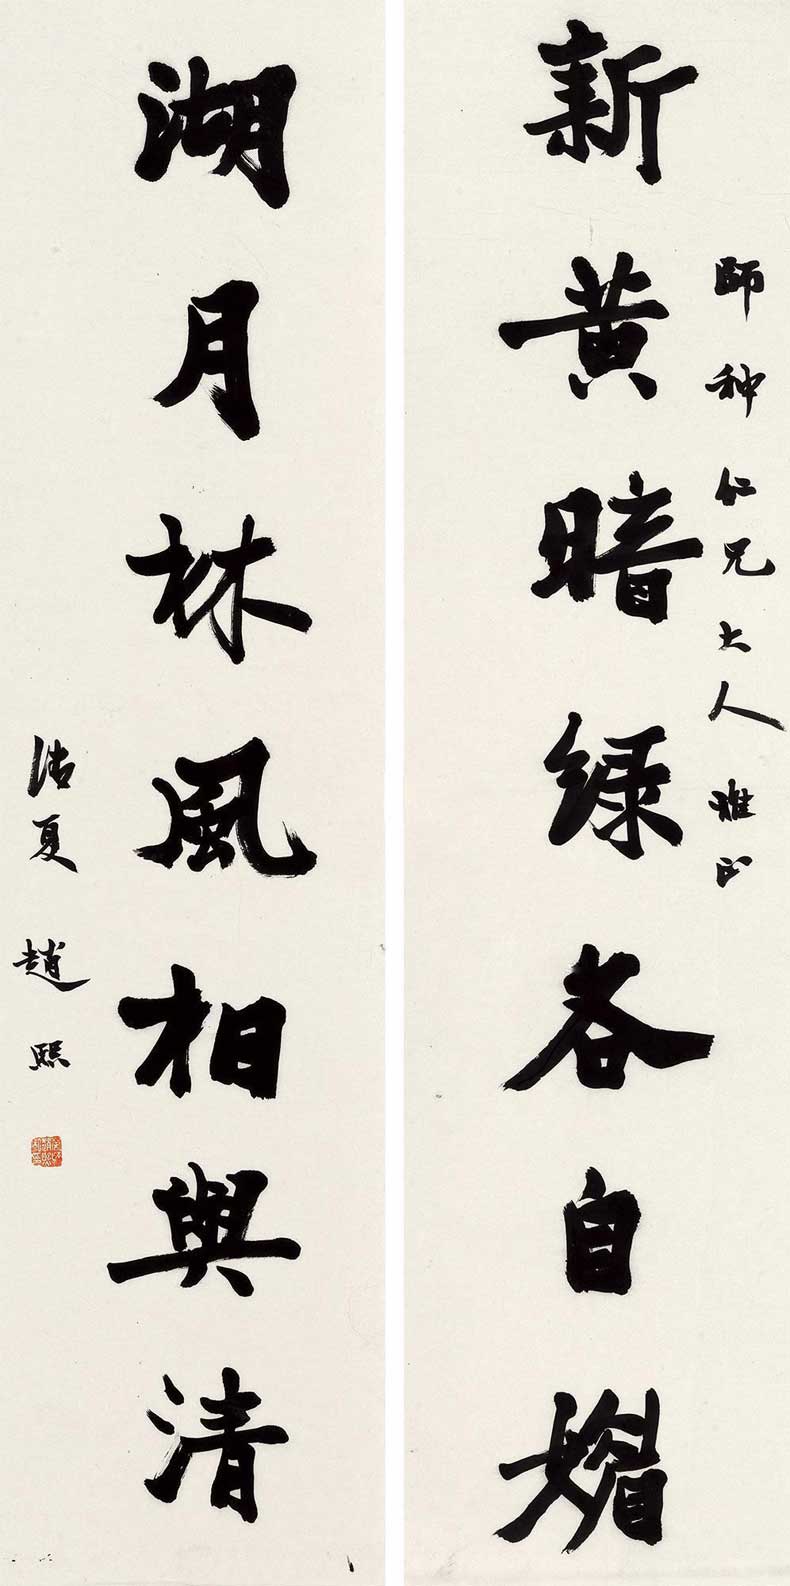 師種仁兄大人雅正
新黃暗綠各自媚
湖月林風相與清
清夏 趙熙